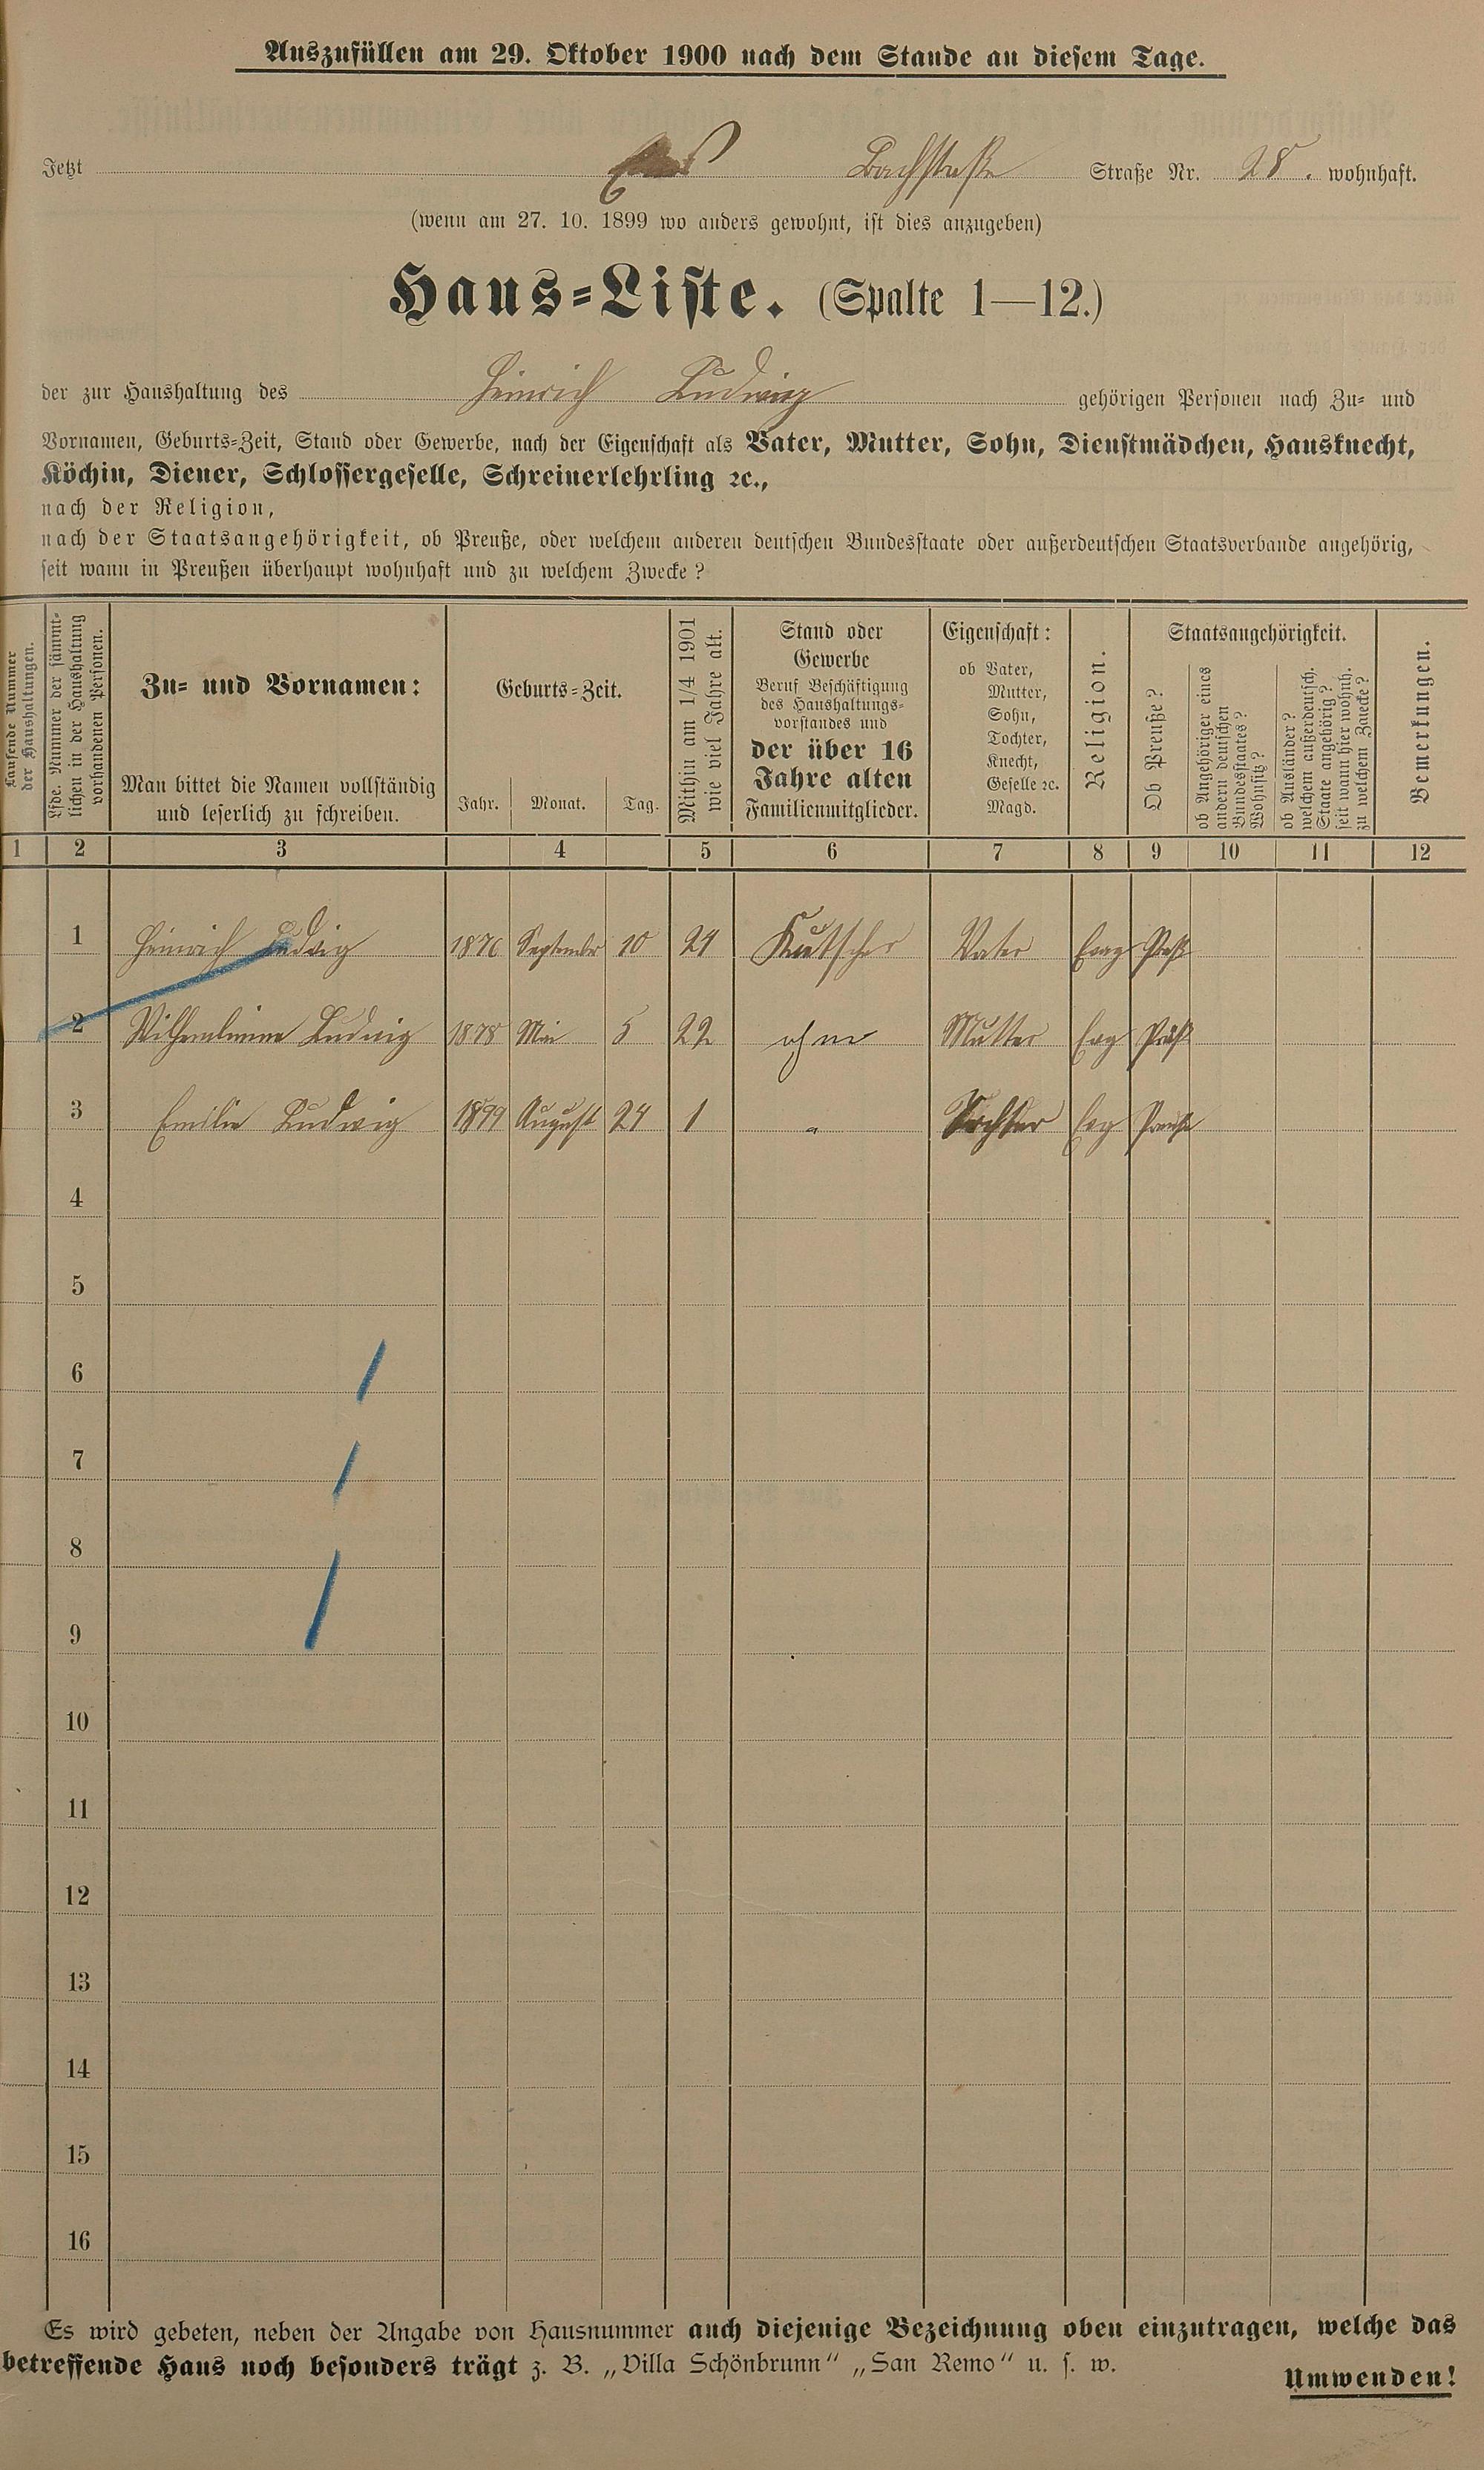 Auszufüllen am 29. Oktober 1900 nach dem Stande an diesem Tage.
Jetzt Bachstraße Straße Nr. 28. wohnhaft.
(wenn am 27. 10. 1899 wo anders gewohnt, ist dies anzugeben)
Haus=Liste. (Spalte 1—12.)
der zur Haushaltung des Heinrich Ludwig gehörigen Personen nach Zu= und
Vornamen, Geburts=Zeit, Stand oder Gewerbe, nach der Eigenschaft als Vater, Mutter, Sohn, Dienstmädchen, Hausknecht,
Köchin, Diener, Schlossergeselle, Schreinerlehrling ꝛc.,
nach der Religion,
nach der Staatsangehörigkeit, ob Preuße, oder welchem anderen deutschen Bundesstaate oder außerdeutschen Staatsverbande angehörig,
seit wann in Preußen überhaupt wohnhaft und zu welchem Zwecke?
Laufende Nummer
der Haushaltungen.
Lfde. Nummer der sämmt-
lichen in der Haushaltung
vorhandenen Personen.
Zu= und Vornamen:
Man bittet die Namen vollständig
und leserlich zu schreiben.
Geburts=Zeit.
Jahr. Monat. Tag.
Mithin am 1/4 1901
wie viel Jahre alt.
Stand oder
Gewerbe
Beruf Beschäftigung
des Haushaltungs=
vorstandes und
der über 16
Jahre alten
Familienmitglieder.
Eigenschaft:
ob Vater,
Mutter,
Sohn,
Tochter,
Knecht,
Geselle ꝛc.
Magd.
Religion.
Staatsangehörigkeit.
Ob Preuße?
ob Angehöriger eines
andern deutschen
Bundesstaates?
Wohnsitz?
ob Ausländer?
welchem außerdeutsch.
Staate angehörig?
seit wann hier wohnh.
zu welchem Zwecke?
Bemerkungen.
1 2 3 4 5 6 7 8 9 10 11 12
1 Heinrich Ludwig 1876 September 10 24 Kutscher Vater Evag
2 Wilhemlinne Ludwig 1878 Mai 5 22 ohne Mutter Evg
3 Emilie Ludwig 1899 August 24 1 " Tochter Evg Preuße
4
5
6
7
8
9
10
11
12
13
14
15
16
Es wird gebeten, neben der Angabe von Hausnummer auch diejenige Bezeichnung oben einzutragen, welche das
betreffende Haus noch besonders trägt z. B. „Villa Schönbrunn“ „San Remo“ u. s. w.
Umwenden!